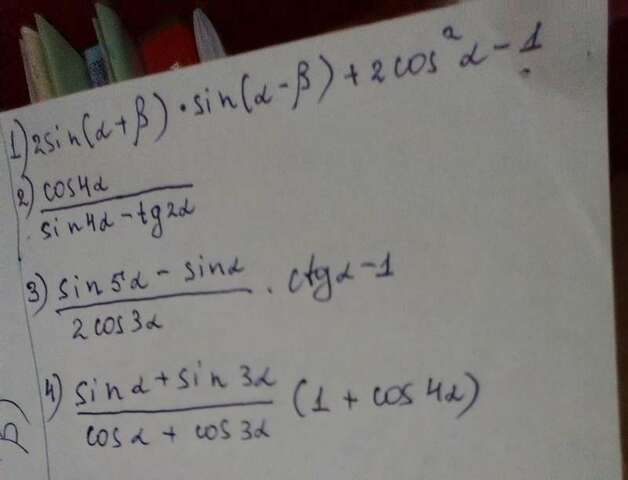 1) 2sin(α+β)·sin(α-β)+2cos²α-1
2) cos4α / sin4α-tg2α
3) sin5α-sinα / 2cos3α · ctgα-1
4) sinα+sin3α / cosα+cos3α (1+cos4α)